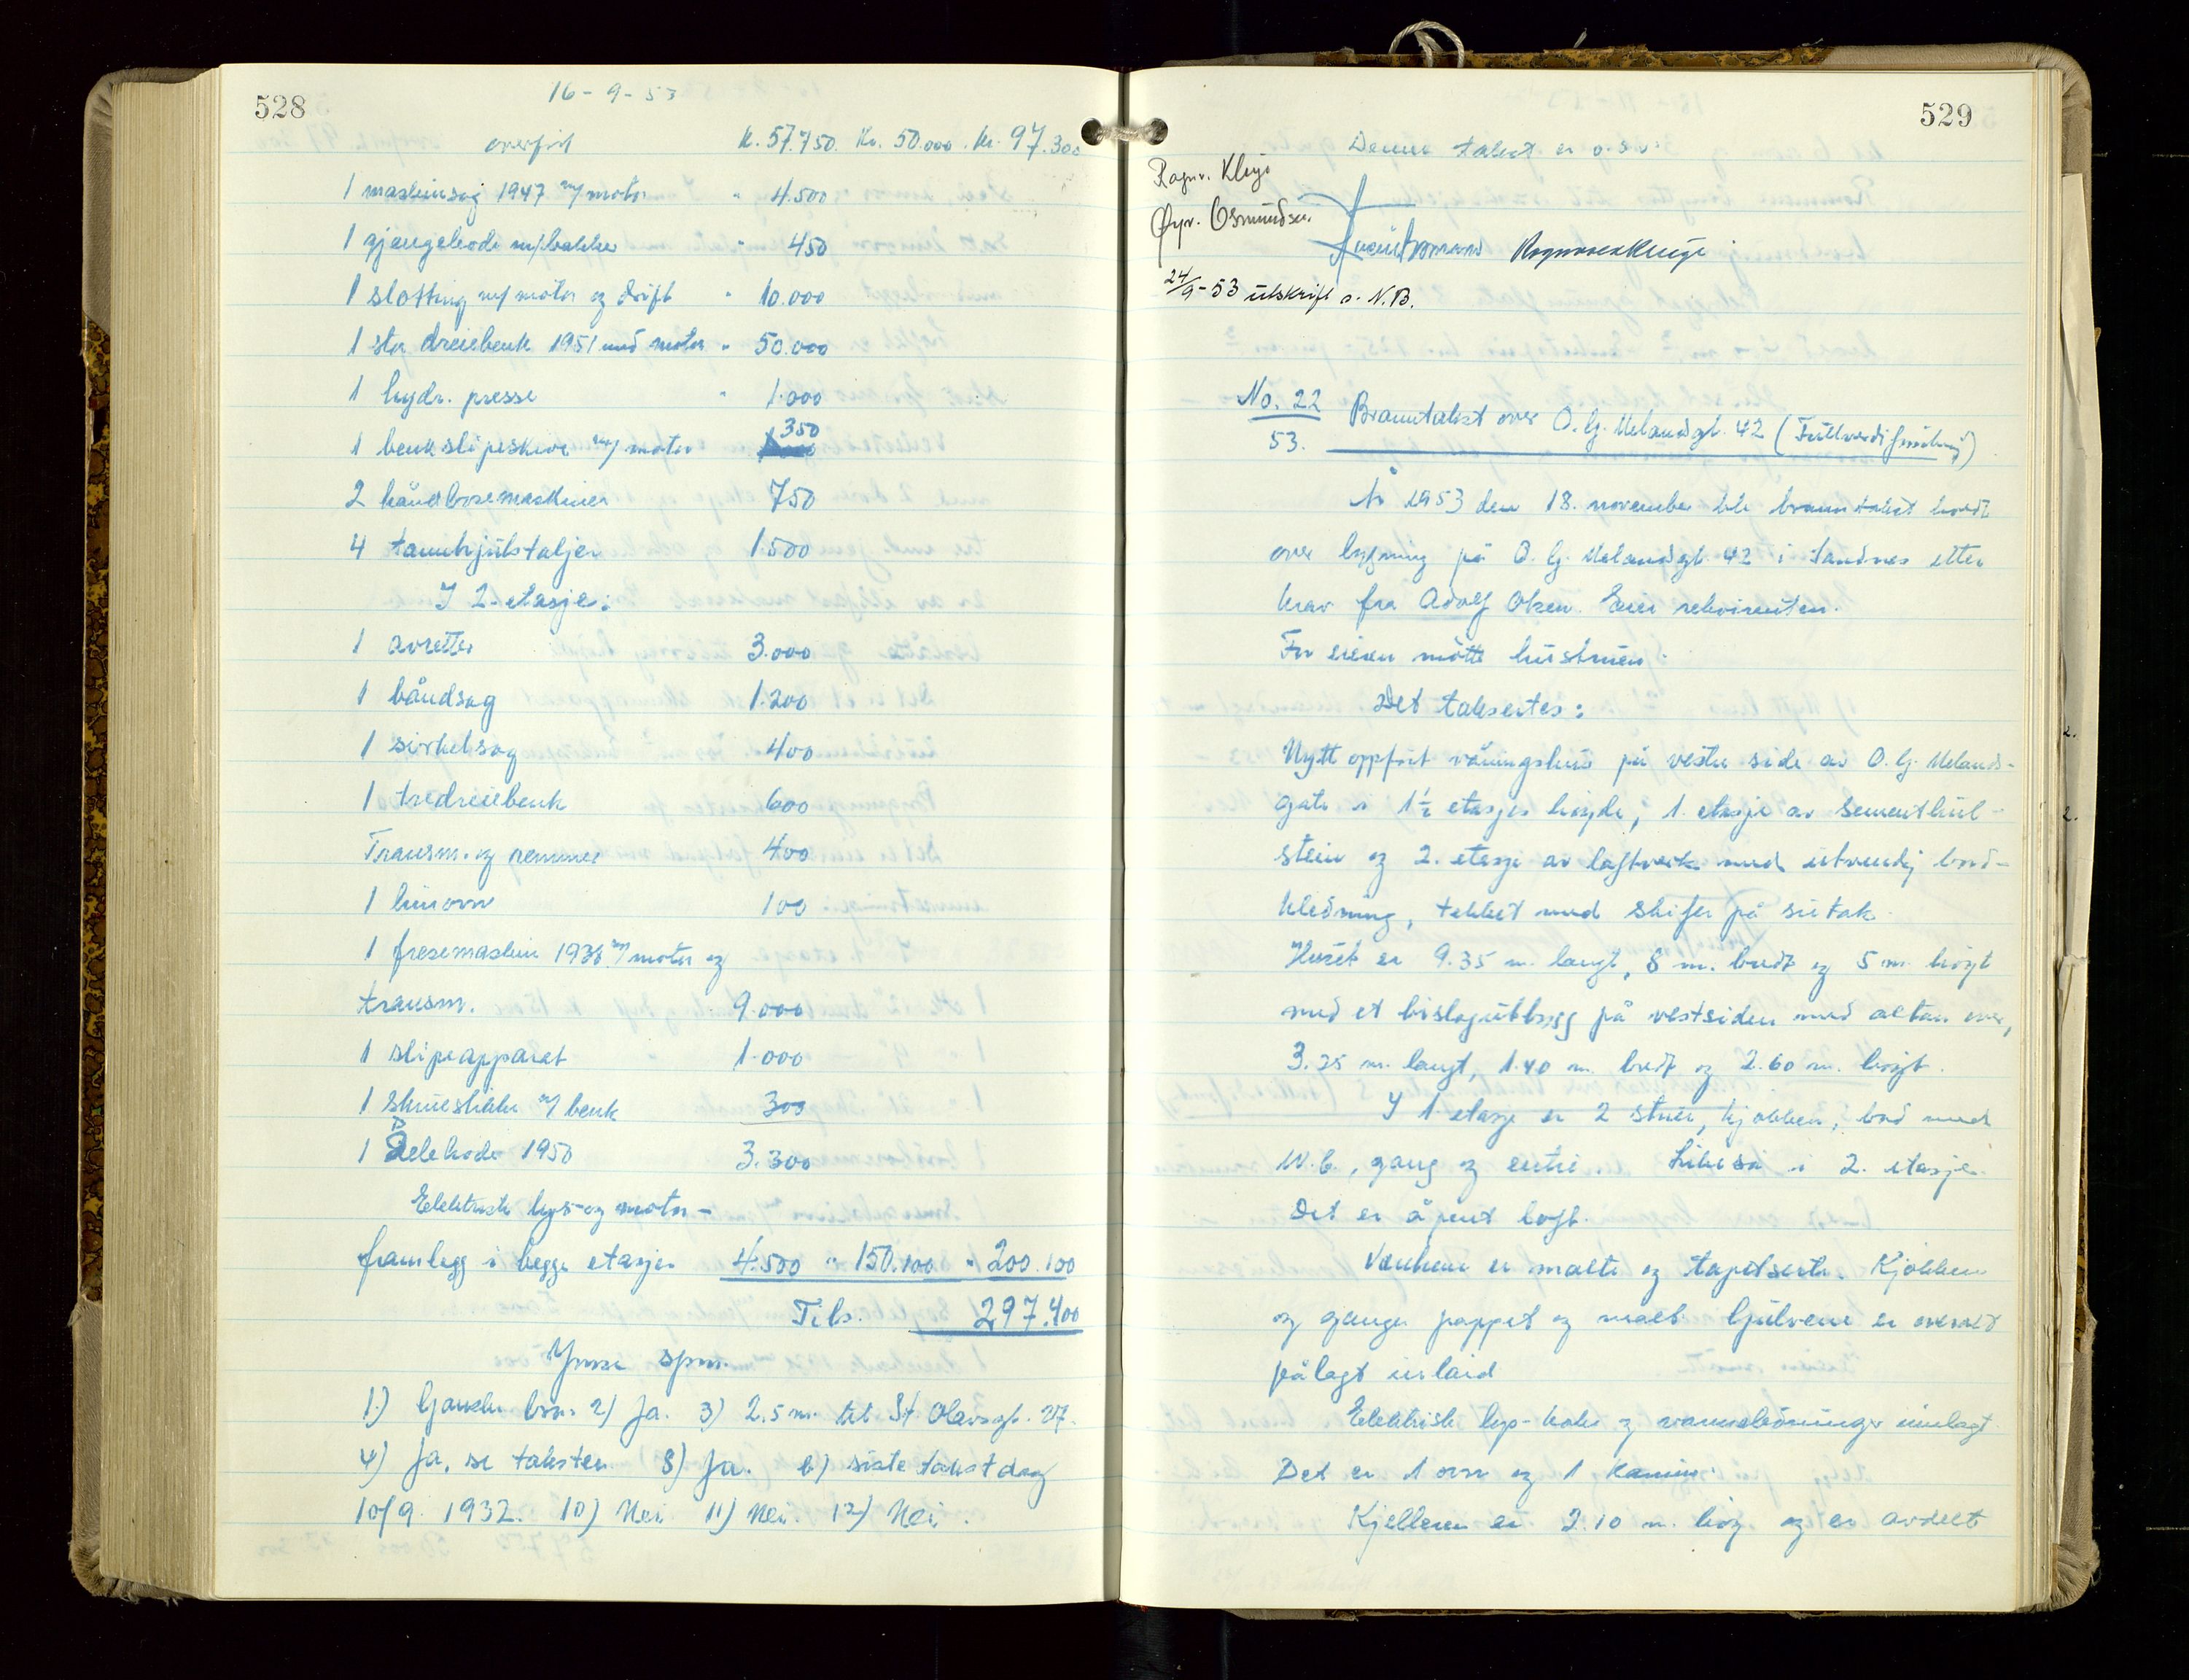 528
16-9-53
overført K. 57.750. Kr. 50.000. Kr. 97.300
1 maskinsag 1947 m/motor " 4.500
1 gjengehode m/bakker " 450
1 slotting m/motor og drift " 10.000
1 stor dreiebenk 1951 med motor " 50.000
1 hydr. presse " 1.000
1 benkslipeskive m/motor 350
2 håndboremaskiner 750
4 tannhjulstaljer 1.500
I 2. etasje:
1 avretter 3.000
1 båndsag 1.200
1 sirkelsag 400
1 tredreiebenk 600
Transm. og remmer 400
1 limovn 100
1 fresemaskin 1938 m/motor og
transm. 9.000
1 slipeapparat 1.000
1 skruestikke m/benk 300
1 Delehode 1950 3.300
Elektrisk lys- og motor-
framlegg i begge etasjer 4.500 " 150.100 " 200.100
Tils. 297.400
Ymse spm.
1.) Ganske bra. 2) Ja. 3) 2.5 m. til St. Olavsgt. 27.
4) Ja, se taksten 8) Ja. 6) siste takstdag
10/9. 1932. 10) Nei 11) Nei. 12) Nei.
529
Denne takst er o.s.v.
Ragnv. Kleije
Øyv. Osmundsen
Ragnvald Kleije
24/9-53 utskrift s. N.B.
No. 22
53. Branntakst over O. G. Melandsgt. 42 (Fullverdiforsikring)
År 1953 den 18. november ble branntakst holdt
over bygning på O. G. Melandsgt. 42 i Sandnes etter
krav fra Adolf Olsen. Eier rekvirenten.
For eieren møtte hustruen.
Det taksertes:
Nytt oppført våningshus på vestre side av O. G. Melands-
gate i 1½ etasjes høyde, 1. etasje av sementhul-
stein og 2. etasje av laftverk med utvendig bord-
kledning, tekket med skifer på sutak.
Huset er 9.35 m. langt, 8 m. bredt og 5 m. høgt
med et bislagutbygg på vestsiden med altan over,
3.25 m. langt, 1.40 m. bredt og 2.60 m. høgt.
I 1. etasje er 2 stuer, kjøkken, bad med
W.C., gang og entre. Likeså i 2. etasje.
Det er åpent loft.
Værelsene er malte og tapetserte. Kjøkken
og ganger pappet og malt. Gulvene er overalt
pålagt inlaid
Elektrisk lys- koke og varmeledninger innlagt.
Det er 1 ovn og 1 kamin.
Kjelleren er 2.10 m. høg og er avdelt